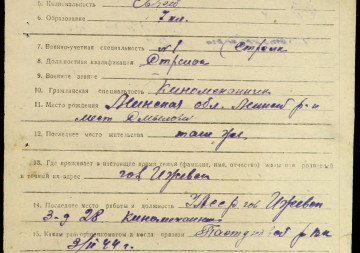 5. Национальность
6. Образование 7 кл.
7. Военно-учетная специальность №1 Стрелк
8. Должностная квалификация Стрелок
9. Воинское звание
10. Гражданская специальность Киномеханик
11. Место рождения Минская обл. Минский р-н
мест
12. Последнее место жительства там же
13. Где проживает в настоящее время семья (фамилия, имя, отчество) жены или родителей
и точный их адрес гор Ижевск
14. Последнее место работы и должность УАССР гор Ижевск
3-д 28 киномеханик
15. Каким райвоенкоматом и когда призван Пастуховский р-вк
44 г.